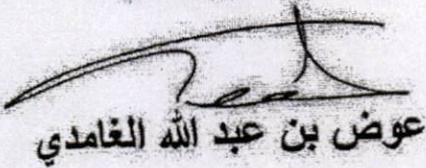 عوض بن عبد الله الغامدي